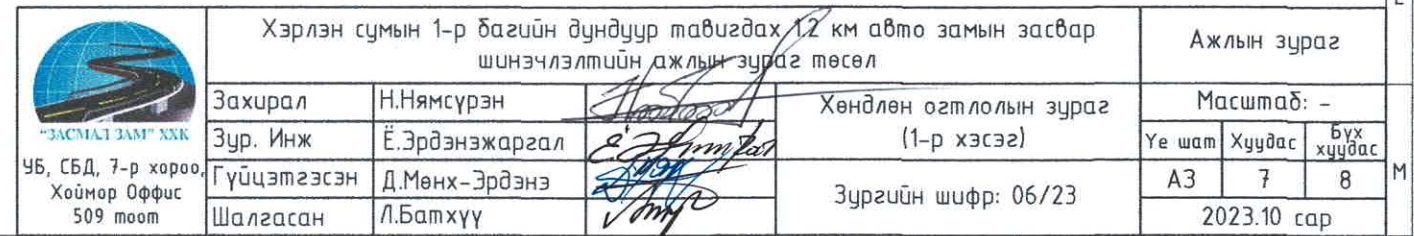 "ЗАСМАЛ ЗАМ" ХХК
УБ, СБД, 7-р хороо,
Хоймор Оффис
509 тоот
Хэрлэн сумын 1-р багийн дундуур тавигдах 1.2 км авто замын засвар
шинэчлэлтийн ажлын зураг төсөл
Захирал Н.Нямсүрэн
Зур. Инж Ё.Эрдэнэжаргал
Гүйцэтгэсэн Д.Мөнх-Эрдэнэ
Шалгасан Л.Батхүү
Хөндлөн огтлолын зураг
(1-р хэсэг)
Зургийн шифр: 06/23
Ажлын зураг
Масштаб: -
Үе шат Хуудас Бүх хуудас
А3 7 8
2023.10 сар
M